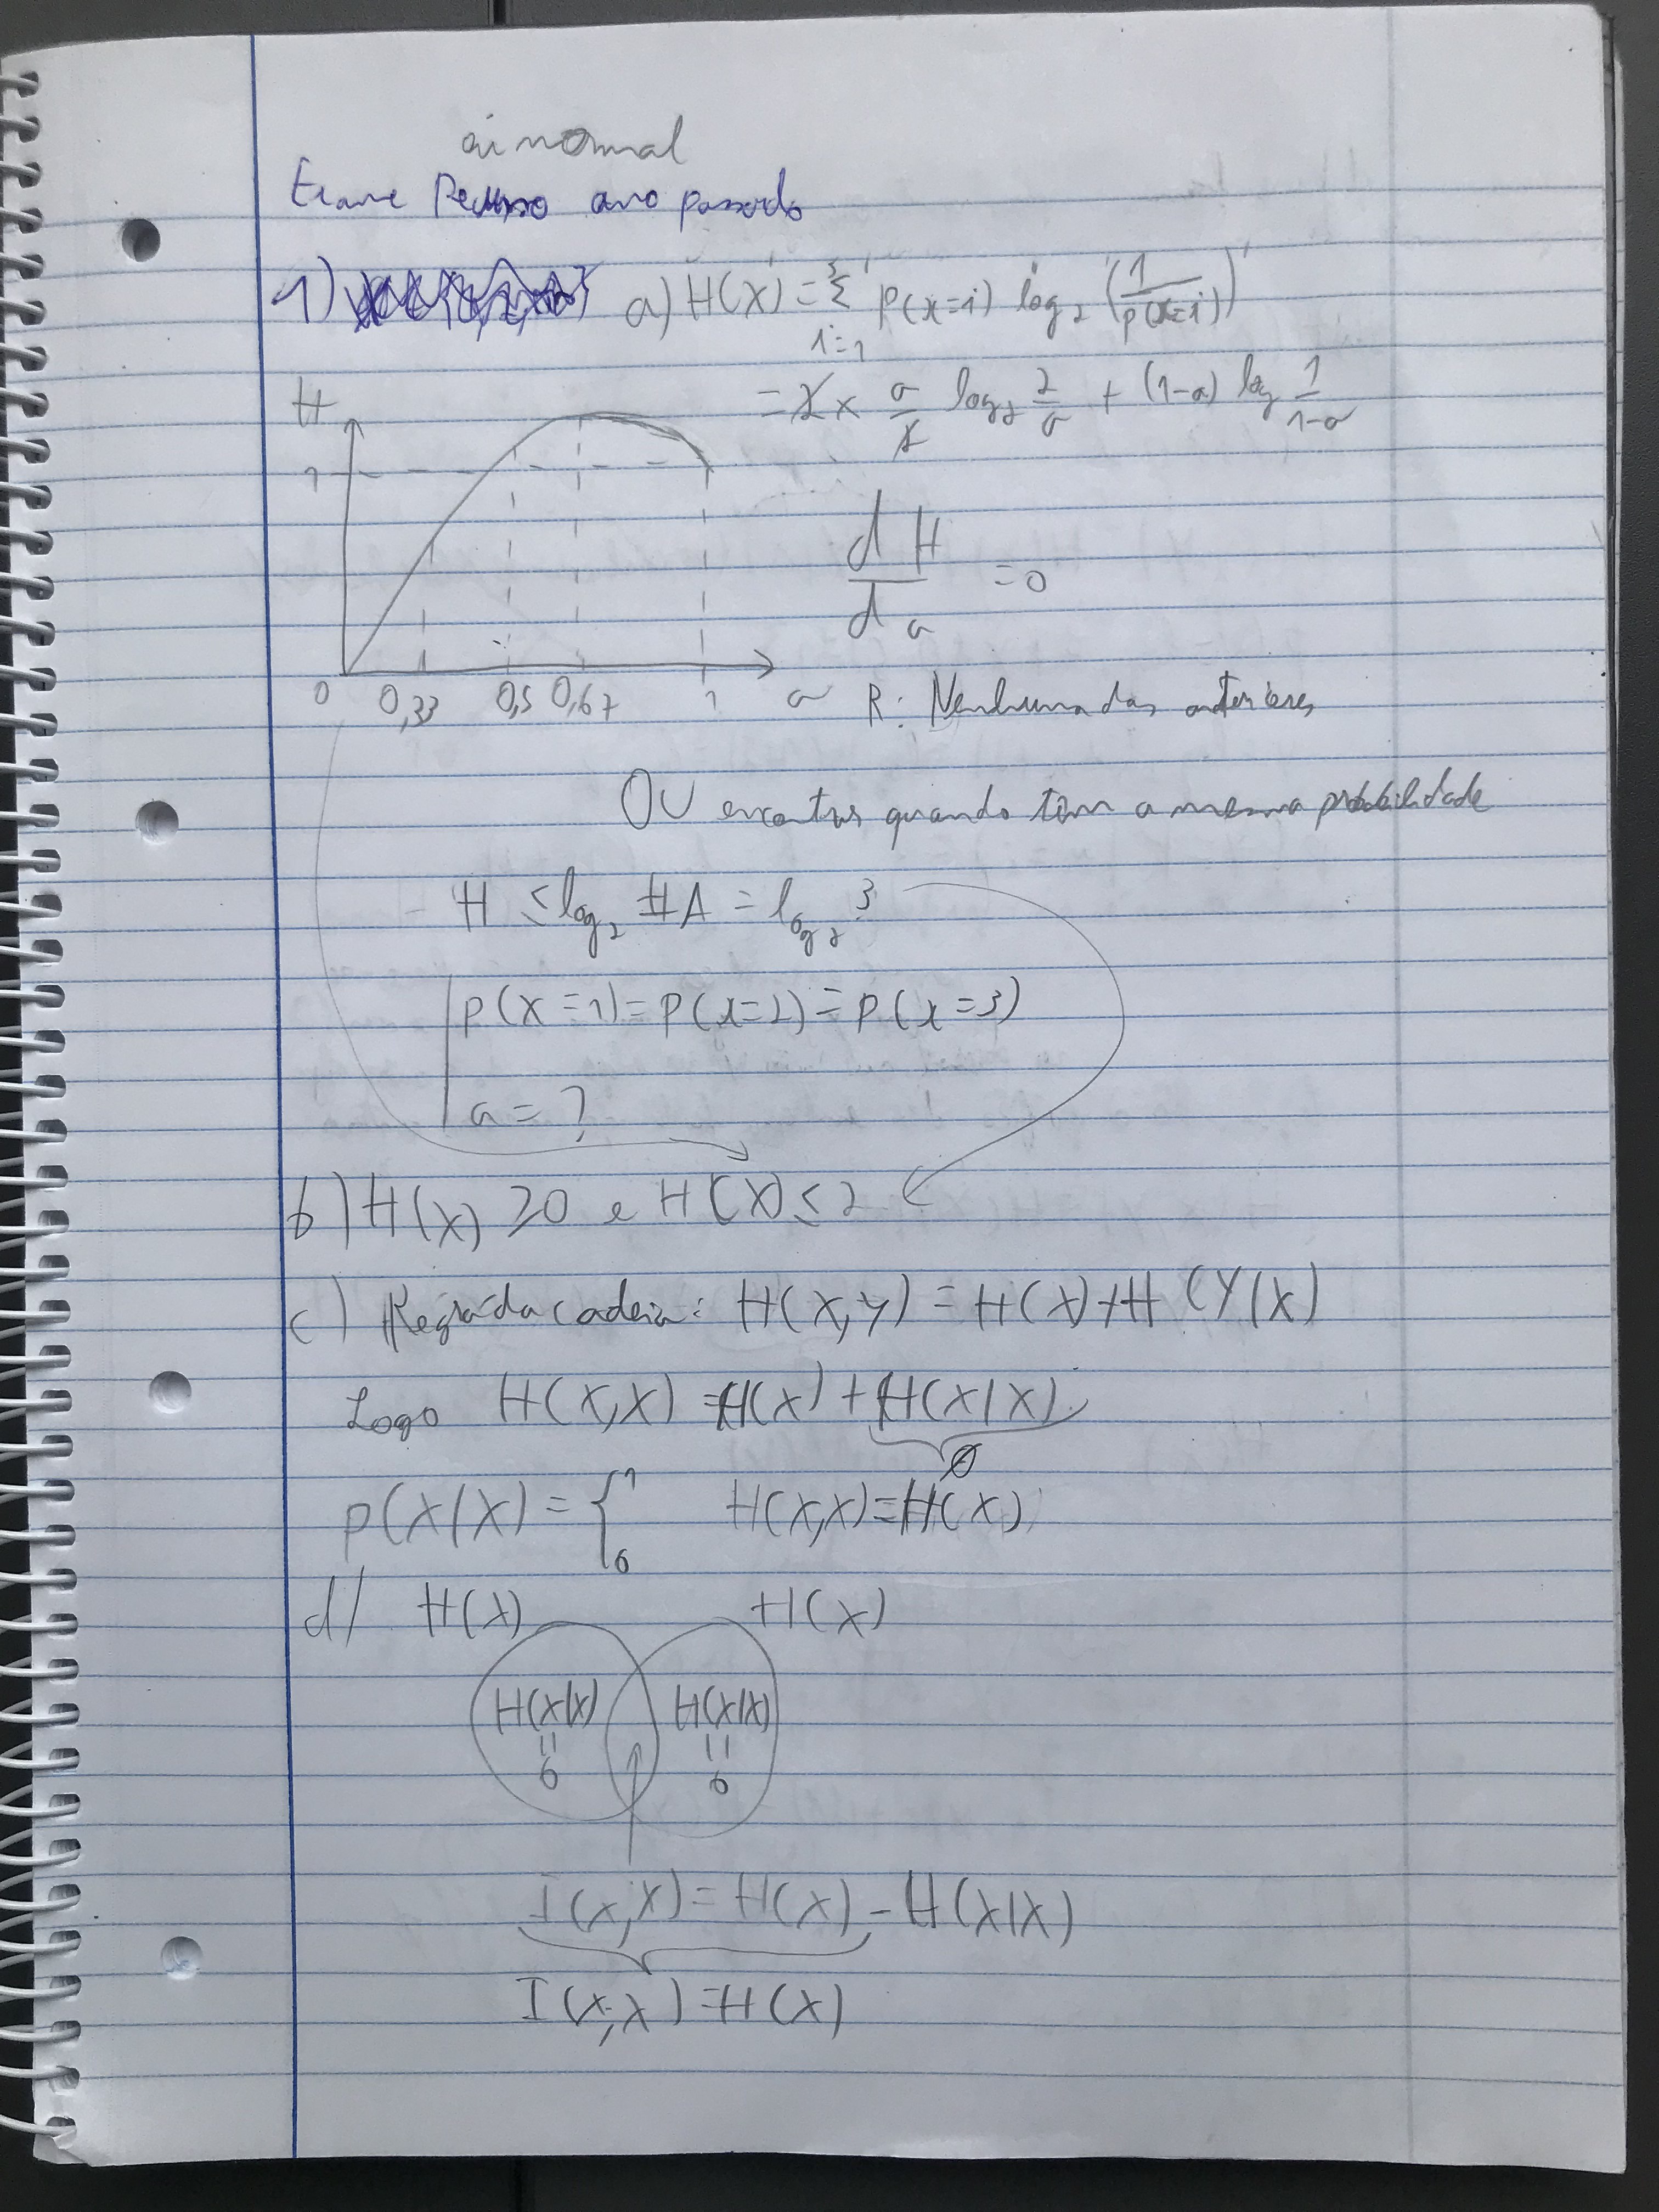 normal
Exame Recurso ano passado
1) a) H(X) = Σ_{i=1}^{3} p(x=i) log₂ (1/p(x=i))
= 2 × a/2 log₂ 2/a + (1-a) log 1/1-a
H
1
dH/da = 0
0 0,33 0,5 0,67 1 a
R: Nenhuma das anteriores
OU encontrar quando têm a mesma probabilidade
H ≤ log₂ #A = log₂ 3
p(X=1) = p(x=2) = p(x=3)
a = ?
b) H(X) ≥ 0 e H(X) ≤ 2
c) Regra da cadeia: H(X,Y) = H(X) + H(Y|X)
Logo H(X,X) = H(X) + H(X|X)
0
p(X|X) = { 1 0 H(X,X) = H(X)
d) H(X) H(X)
H(X|X) H(X|X)
= =
0 0
I(X;X) = H(X) - H(X|X)
I(X;X) = H(X)